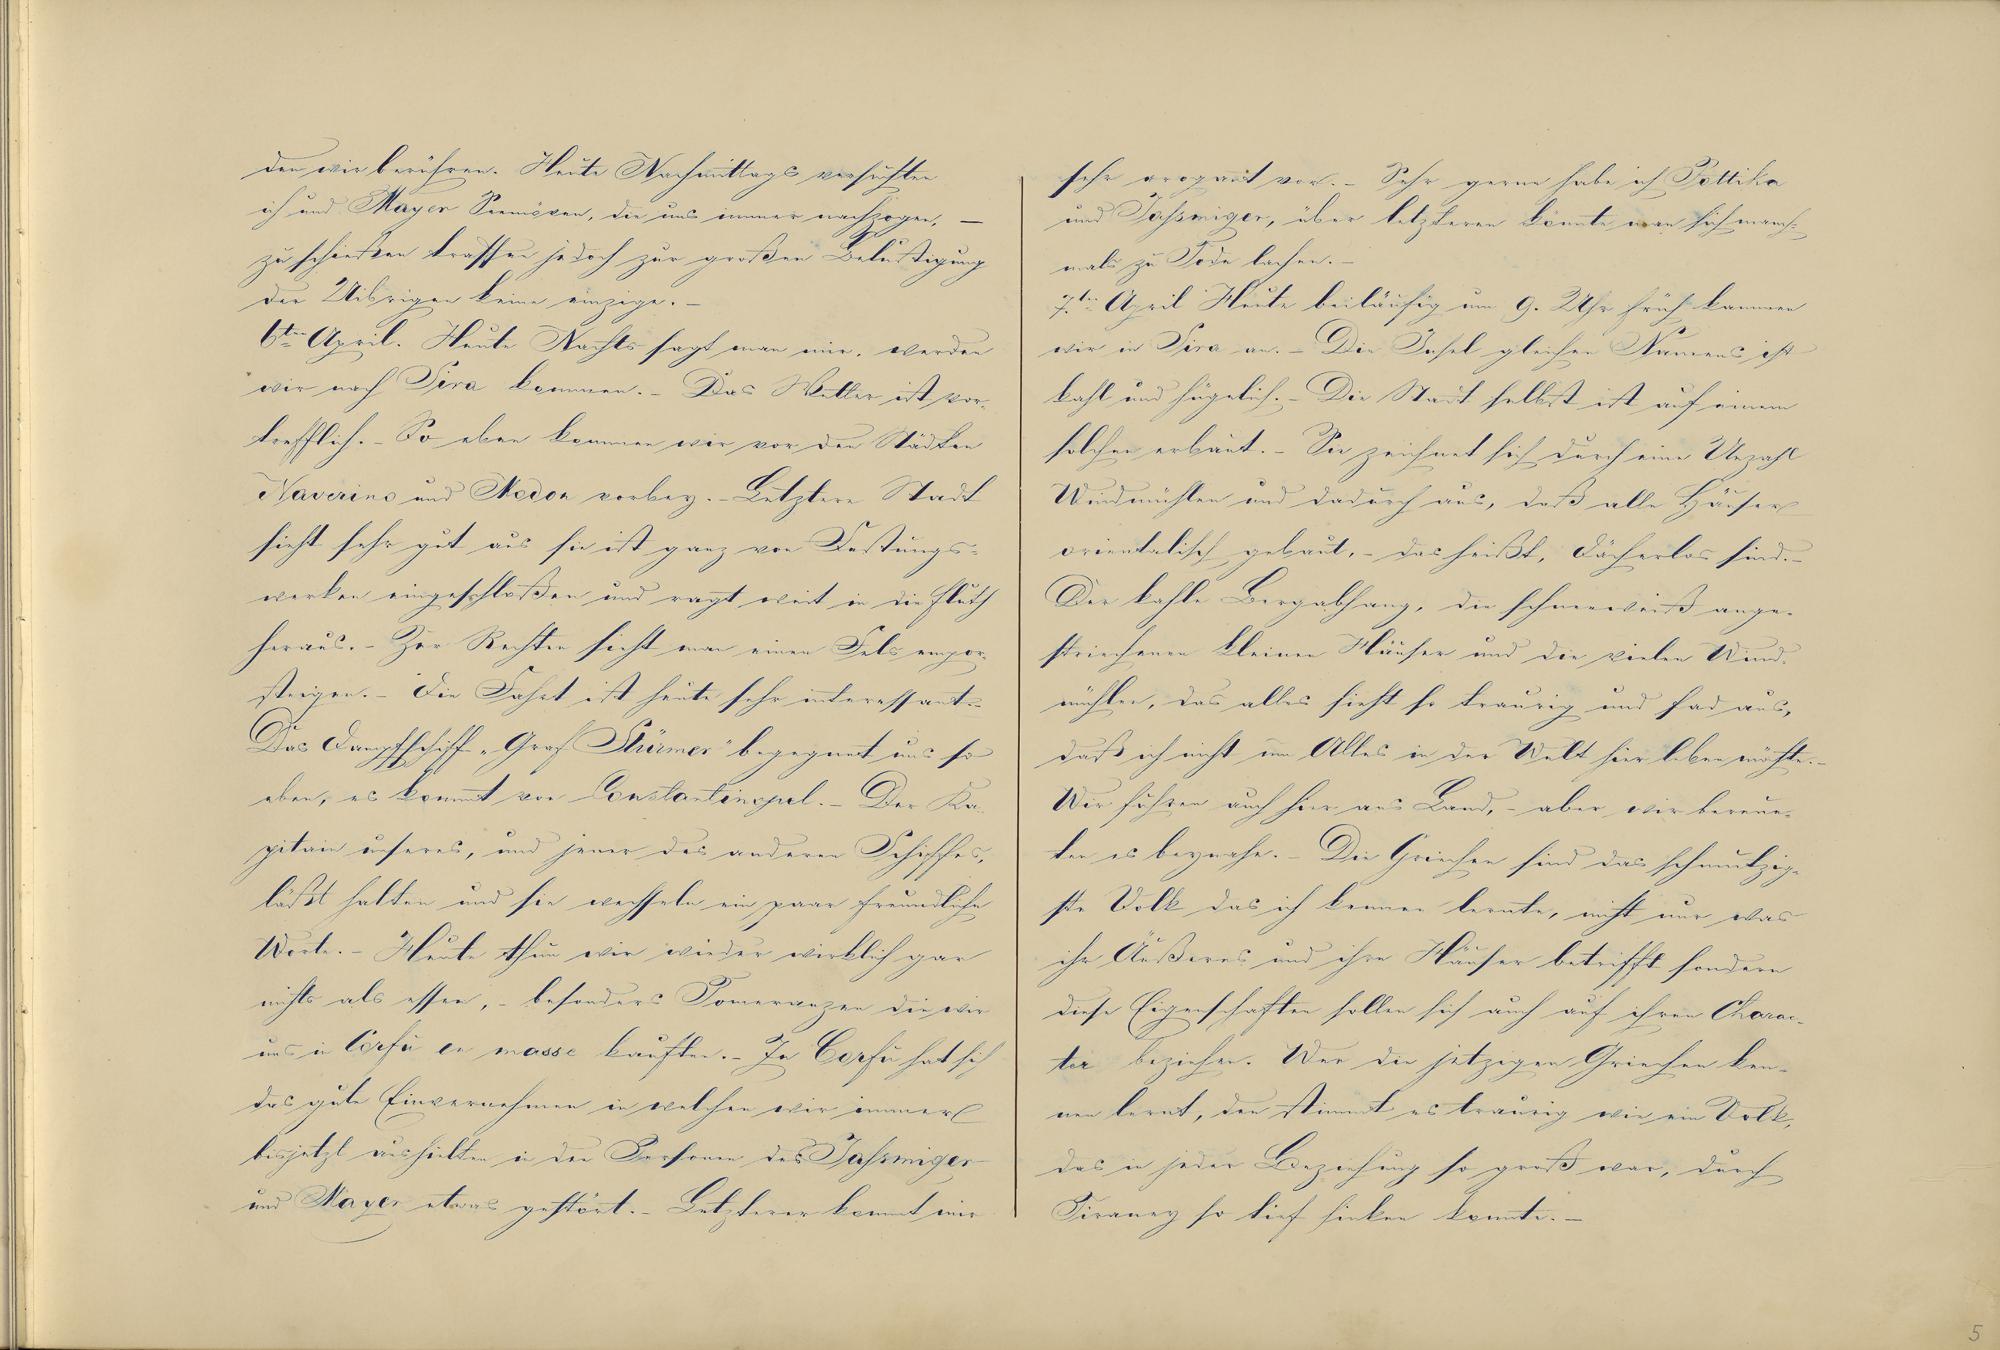 den wir berühren. Heute Nachmittags versuchten
ich und Mayer Seemöven, die uns immer nachzogen, —
zu schießen trafen jedoch zur großen Belustigung
der Uibrigen keine einzige. –
6ten April. Heute Nachts sagt man mir, werden
wir nach Sira kommen. – Das Wetter ist vor-
trefflich. – So eben kommen wir vor den Städten
Naverino und Modon vorbey. – Letztere Stadt
sieht sehr gut aus sie ist ganz von Festungs-
werken eingeschloßen und ragt weit in die Fluth
heraus. – Zur Rechten sieht man einen Fels empor-
steigen. – Die Fahrt ist heute sehr interessant. –
Das Dampfschiff „Graf Stürmer" begegnet uns so
eben, es kommt von Constantinopel. – Der Ka-
pitain unseres, und jener des anderen Schiffes,
läßt halten und sie wechseln ein paar freundliche
Worte. – Heute thun wir wieder wirklich gar
nichts als essen, – besonders Pomeranzen die wir
uns in Corfu en masse kauften. – In Corfu hat sich
das gute Einvernehmen in welchen wir immer
bisjetzt aushielten in den Personen des Jassmiger
und Mayer etwas gestört. – Letzterer kommt mir
sehr arogant vor. – Sehr gerne habe ich Pottika
und Jassmiger, über letzteren könnte man sich manch-
mals zu Tode lachen. –
7ten April Heute beiläufig um 9. Uhr früh kammen
wir in Sira an. – Die Insel gleichen Namens ist
kahl und hügelich. – Die Stadt selbst ist auf einem
solchen erbaut. – Sie zeichnet sich durch eine Unzahl
Windmühlen und dadurch aus, daß alle Häuser
orientalisch gebaut, – das heißt, dächerlos sind. –
Der kahle Bergabhang, die schneeweiß ange-
strichenen kleinen Häuser und die vielen Wind-
mühlen, das alles sieht so traurig und fad aus,
daß ich nicht um Alles in der Welt hier leben möchte. –
Wir fuhren auch hier ans Land, – aber wir bereue-
ten es beynahe. – Die Griechen sind das schmutzig-
ste Volk das ich kennen lernte, nicht nur was
ihr Äußeres und ihre Häuser betrifft sondern
diese Eigenschaften sollen sich auch auf ihren Charac-
ter beziehen. Wer die jetzigen Griechen ken-
nen lernt, den stimmt es traurig wie ein Volk,
das in jeder Beziehung so groß war, durch
Tiraney so tief sinken konnte. –
5